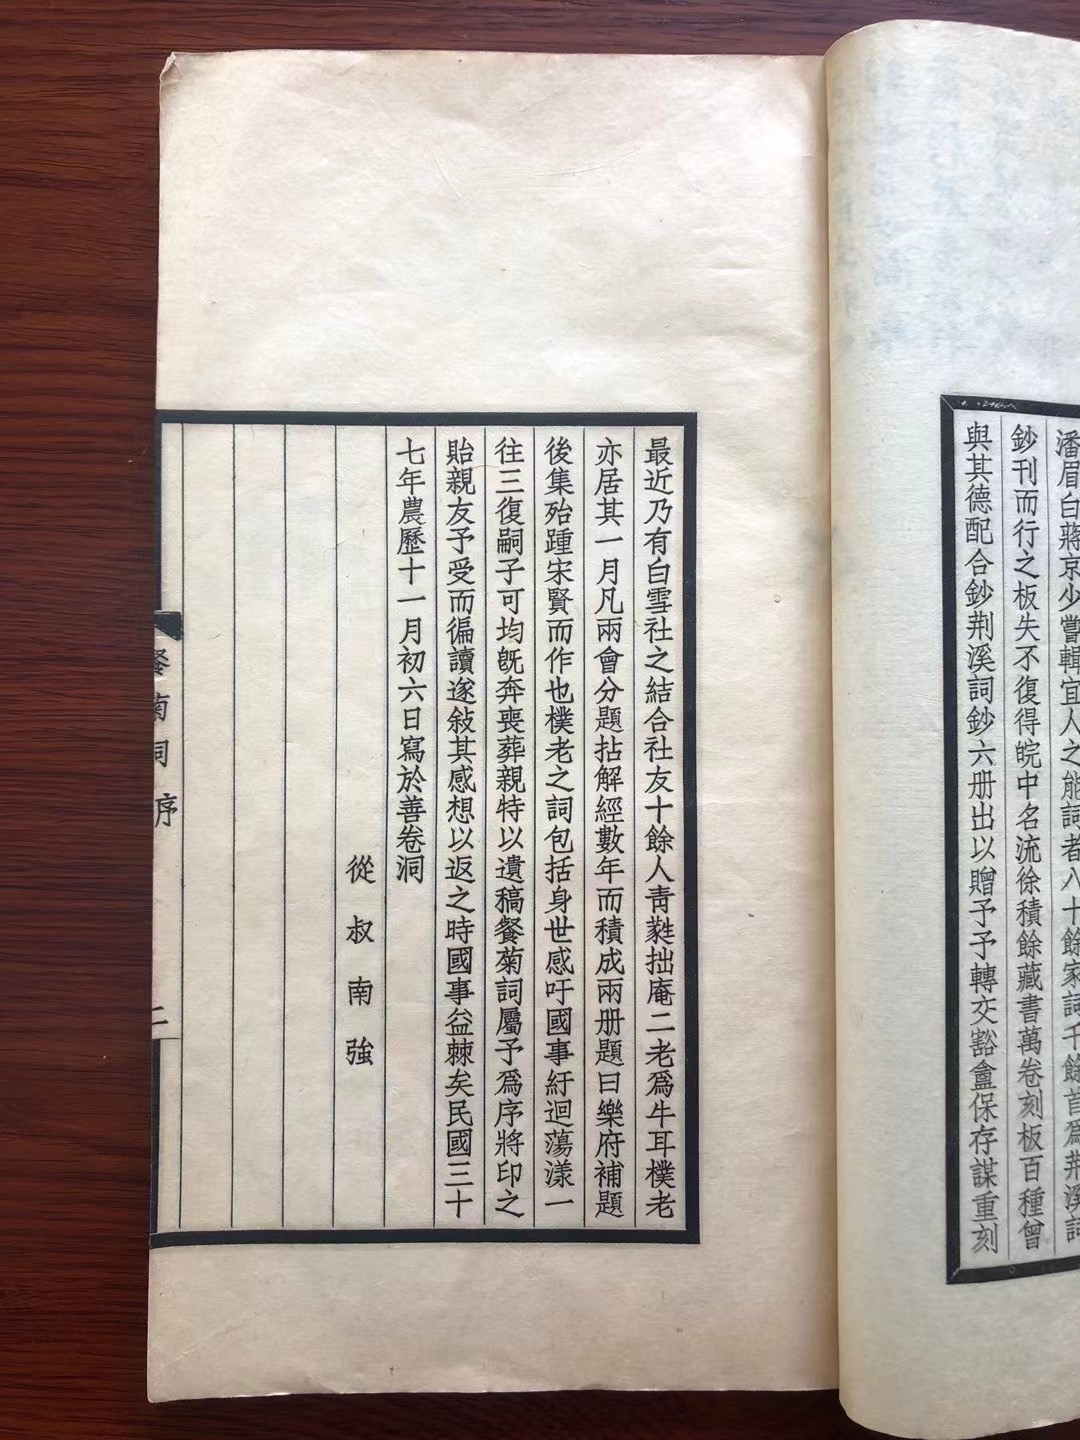 潘眉白蔣京少嘗輯宜人之能詞者八十餘家詞千餘首爲荆溪詞
鈔刊而行之板失不復得皖中名流徐積餘藏書萬卷刻板百種曾
與其德配合鈔荆溪詞鈔六册出以贈予予轉交豁盦保存謀重刻
最近乃有白雪社之結合社友十餘人靑蕤拙庵二老爲牛耳樸老
亦居其一月凡兩會分題拈解經數年而積成兩册題曰樂府補題
後集殆踵宋賢而作也樸老之詞包括身世感吁國事紆迴蕩漾一
往三復嗣子可均旣奔喪葬親特以遺稿餐菊詞屬予爲序將印之
貽親友予受而徧讀遂敍其感想以返之時國事益棘矣民國三十
七年農歷十一月初六日寫於善卷洞
從叔南強
餐菊詞 序
二